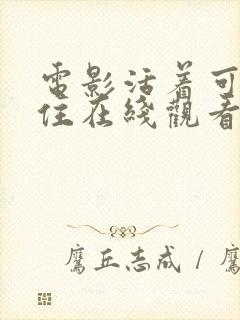 電影活着可
住在綫觀看
鷹丘志成 / 鷹